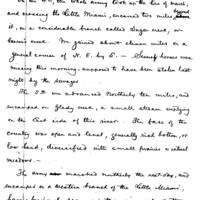 the whole army took up the line of march,
and crossing the Little Miami, encamped two miles beyond
it, on a considerable branch called Sugar creek, or
creek. We gained about eleven miles on a
general course of N. by E. — Several horses were
missing this morning; supposed to have been stolen last
night by the savages
The 8th we advanced Northerly ten miles, and
encamped on Glady creek, a small stream emptying
on the East side of this river. The face of the
country was open and level, generally rich bottom, or
low land, diversified with small prairies or natural
meadows.—
The Army marched northerly the next day, and
encamped on a western branch of the Little Miami,